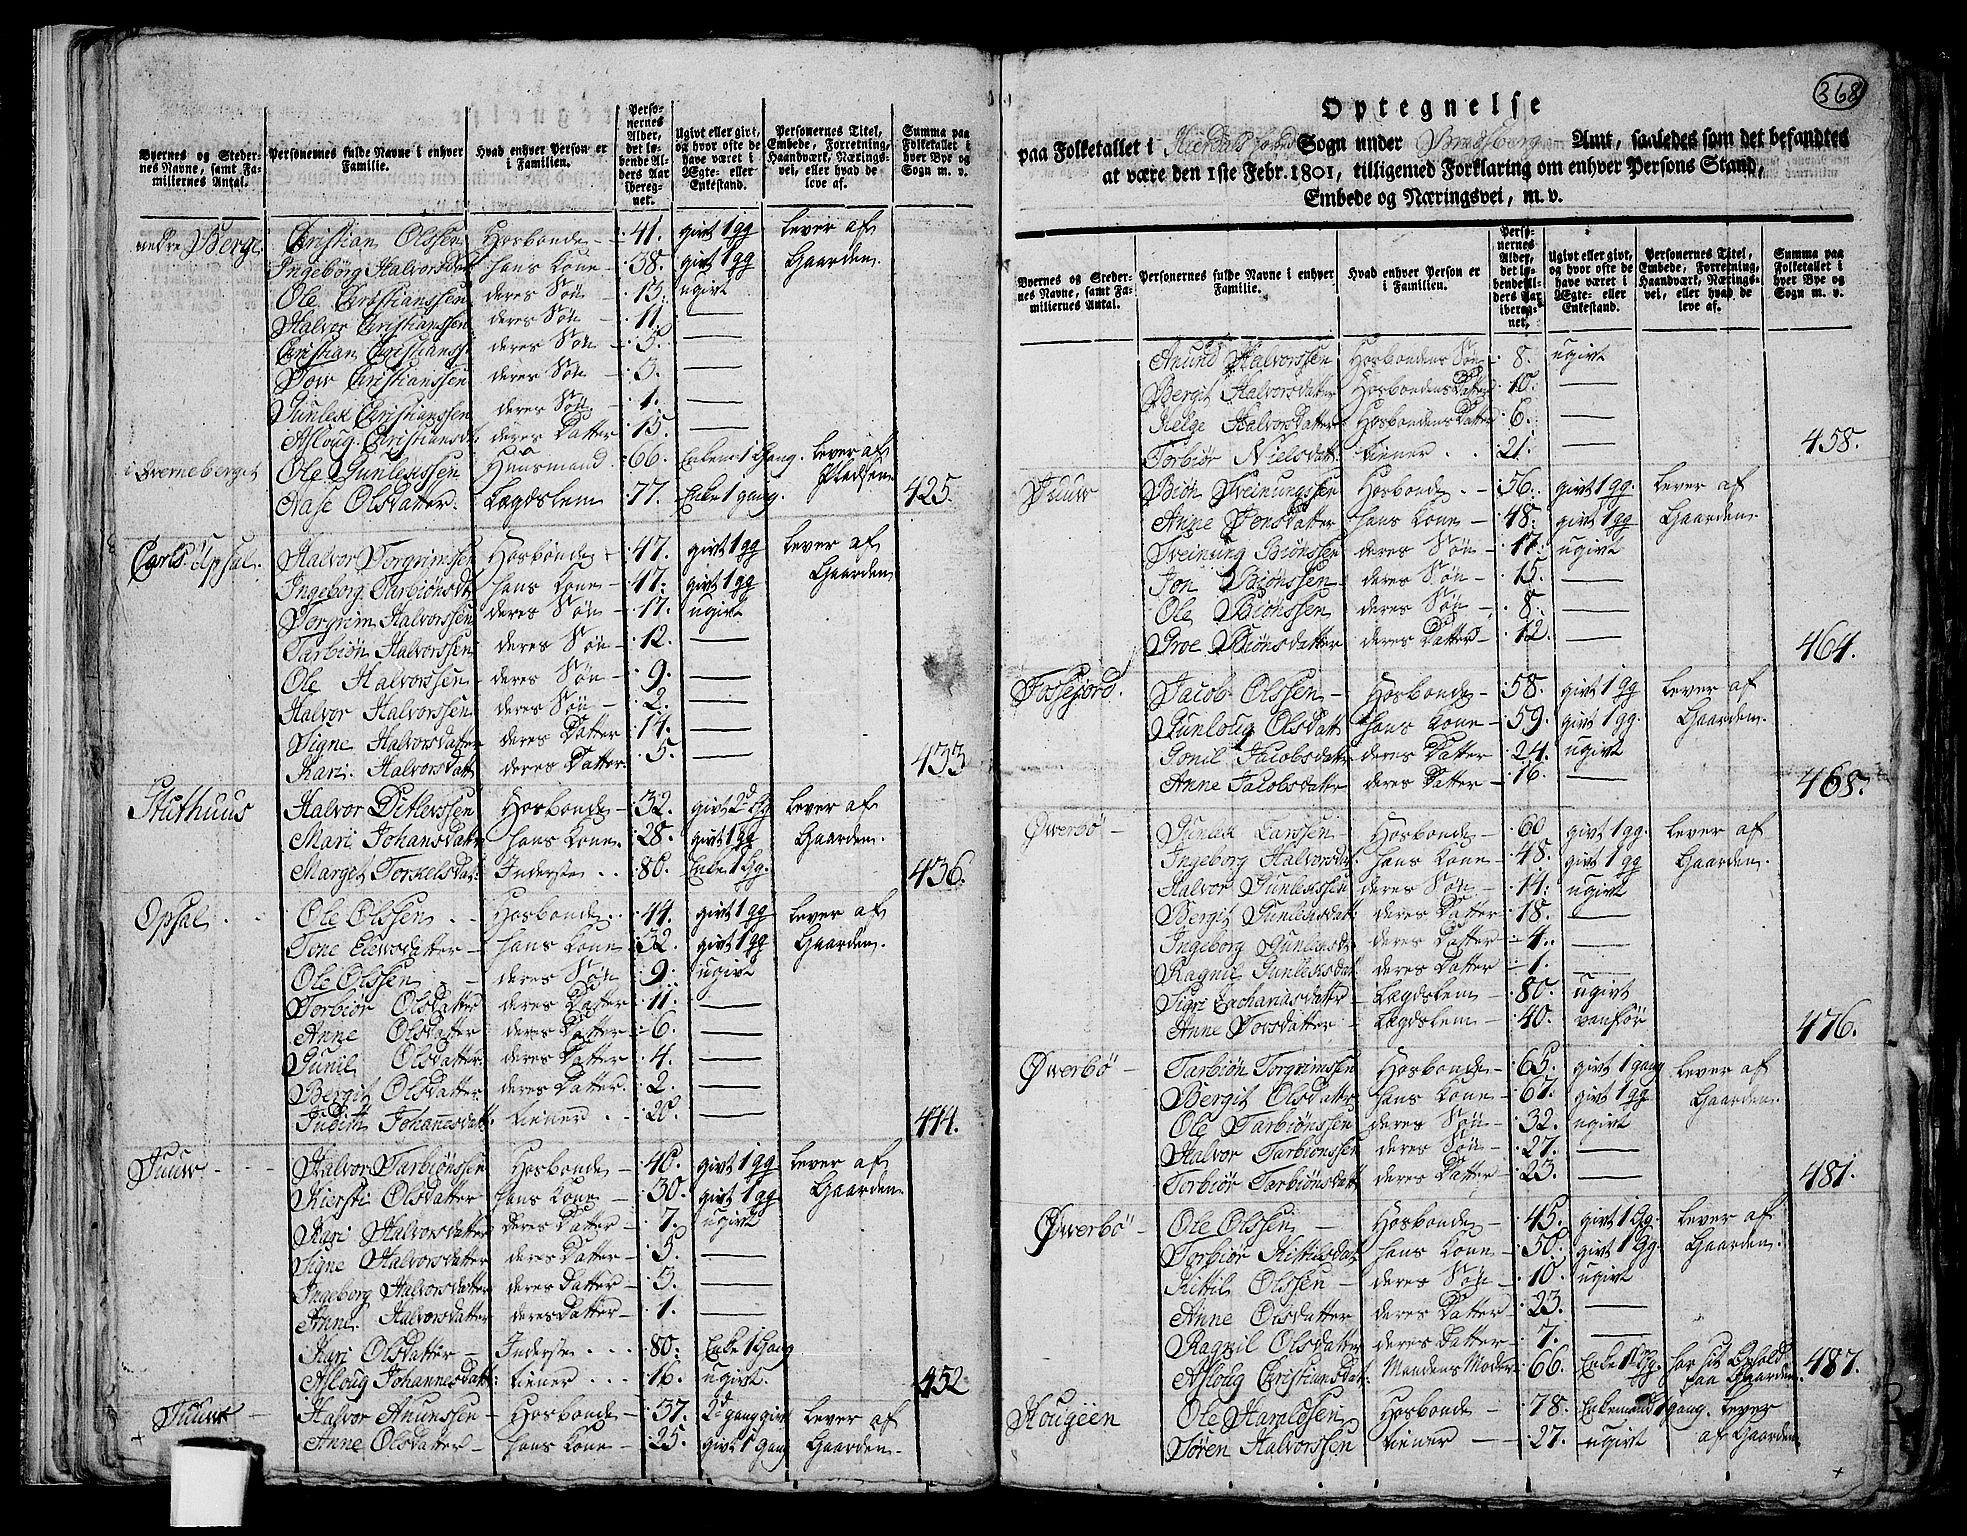 Byernes og Stedernes Navne, samt Familiernes Antal.
Personernes fulde Navne i enhver Familie.
Hvad enhver Person er i Familien.
Personernes Alder, det løbende Alders Aar iberegnet.
Ugivt eller givt, og hvor ofte de have været i Ægte- eller Enkestand.
Personernes Titel, Embede, Forretning, Haandværk, Næringsvei, eller hvad de leve af.
Summa paa Folketallet i hver Bye og Sogn m. v.
nedre Berge Christian Olssen Hosbonde 41. givt 1 gg lever af
Ingebörg Halvorsdat hans Kone 38. givt 1 gg Gaarden
Ole Christianssen deres Søn 13. ugivt
Halvor Christianssen deres Søn 11 —
Christian Christianss. deres Søn 5. —
Christianssen deres Søn 3. —
Gunlek Christianssen deres Søn 1. —
Asloug Christiansd. deres Datter 15. —
i Berget Ole Gunlekssen Huusmand 66. Enkem 1 Gang. lever af
Aase Olsdatter. Lægdslem 77. Enke 1 gang. Pladsen 425.
Carls Opsal. Halvor Torgrimsen Hosbonde 47. givt 1 gg lever af
Ingeborg Tarbiönsdt hans Kone 47. givt 1 gg Gaarden
Torgrim Halvorssen deres Søn 17. ugivt
Tarbiön Halvorssen deres Søn 12. —
Ole Halvorssen deres Søn 9. —
Halvor Halvorssen deres Søn 2. —
Signe Halvorsdatter deres Datter 14. —
Kari Halvorsdatt deres Datter 5. — 433
Stuthuus Halvor Ditlevssen Hosbonde 32. givt 2d Gg lever af
Mari Johansdatt hans Kone 28. givt 1 gg Gaarden.
Margit Torkelsdat: Inderste 80. Enke 1 Gg. 436.
Opsal Ole Olssen Hosbonde 44. givt 1 gg lever af
Tone datter hans Kone 32. givt 1 gg Gaarden.
Ole Olssen deres Søn 9. ugivt
Torbiör Olsdatter deres Datter 11. —
Anne Olsdatter deres Datter 6. —
Gunil Olsdatter deres Datter 4. —
Bergit Olsdatter deres Datter. 2. —
Judith Johannesdatt: tiener 20. — 444.
Juuw Halvor Tarbiönssen Hosbonde 40. givt 1 gg lever af
Kiersti Olsdatter hans Kone 30. givt 1 gg Gaarden.
Kari Halvorsdatter deres Datter 7. ugivt
Signe Halvorsdatter deres Datter 5. —
Ingeborg Halvorsdatter deres Datter 3. —
Anne Halvorsdatter deres Datter 1. —
Kari Olsdatter Inderste 80. Enke 1 Gang
Asloug Johannesdatt: tiener 16. ugivt. 452
Juuw Halvor Anunssen Hosbonde 37. 2d gang givt lever af
Anne Olsdatter hans Kone 25. givt 1 gang Gaarden.
368
Optegnelse
paa Folketallet i Hierdals Sogn under Bradsberg Amt, saaledes som det befandtes
at være den 1ste Febr. 1801, tilligemed Forklaring om enhver Persons Stand,
Embede og Næringsvei, m. v.
Byernes og Stedernes Navne, samt Familiernes Antal.
Personernes fulde Navne i enhver Familie.
Hvad enhver Person er i Familien.
Personernes Alder, det løbende Alders Aar iberegnet.
Ugivt eller givt, og hvor ofte de have været i Ægte- eller Enkestand.
Personernes Titel, Embede, Forretning, Haandværk, Næringsvei, eller hvad de leve af.
Summa paa Folketallet i hver Bye og Sogn m. v.
Anund Halvorssen Hosbondens Søn 8. ugivt
Bergit Halvorsdatter Hosbondens Datter 10. —
Helge Halvorsdatter Hosbondens Datter 6. —
Torbiör Nielsdatt. tiener 21. — 458.
Juuw Biön Sveinungssen Hosbonde 56. givt 1 gg lever af
Anne Jonsdatter hans Kone 48. givt 1 gg Gaarden
Sveinung Biönssen deres Søn 17. ugivt
Jon Biönssen deres Søn 15. —
Ole Biönssen deres Søn 8. —
Groe Biönsdatter deres Datter 12. — 464.
Fossejord. Jacob Olssen Hosbonde 58. givt 1 gg lever af
Gunloug Olsdatt hans Kone 59. givt 1 gg. Gaarden.
Gonil Jacobsdatter deres Datter 24. ugivt
Anne Jacobsdatter deres Datter 16. — 468.
Øwerbö Gunlek Larssen Hosbonde 60 givt 1 gg. lever af
Ingeborg Halvorsdat. hans Kone 48. givt 1 gg Gaarden.
Halvor Gunlekssen deres Søn 14. ugivt
Bergit Gunleksdatt: deres Datter 18. —
Ingeborg Gunleksdt deres Datter 4. —
Ragnil Gunleksdat deres Datter 1. —
Sigri Zachariasdatter Lægdslem 80. ugivt
Anne datter Lægdslem 40. vanför 476.
Øwerbö Tarbiön Torgrimssen Hosbonde 65. givt 1 gang lever af
Bergit Olsdatter hans Kone 67. givt 1 gg Gaarden
Ole Tarbiönssen deres Søn 32. ugivt
Halvor Tarbiönssen deres Søn 27. —
Torbiör Tarbiönsdatt deres Datter 23. — 481.
Øwerbö Ole Olssen Hosbonde 45. givt 1 Gg. lever af
Torbiör Kittilsdat hans Kone 50. givt 1 Gg. Gaarden.
Kittil Olssen deres Søn 10. ugivt
Anne Olsdatter deres Datter 23. —
Ragnil Olsdatter deres Datter 7. —
Asloug Christiansdat: Mandens Moder 66. Enke 1 Gg. har sit Ophold paa Gaarden. 487.
Hougeen Ole Hansen Hosbonde 78. Enkemand 1 gang. lever
Søren Halvorssen tiener 27. ugivt af Gaarden